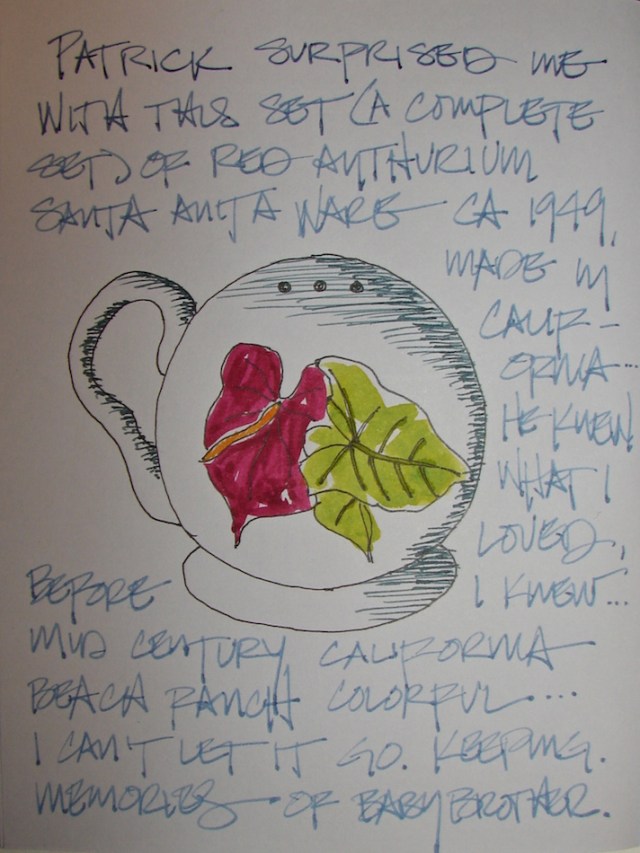 PATRICK SURPRISED ME
WITH THIS SET (A COMPLETE
SET) OF RED ANTHURIUM
SANTA ANITA WARE CA 1949,
MADE IN
CALIF-
ORNIA...
HE KNEW
WHAT I
LOVED,
BEFORE I KNEW...
MID CENTURY CALIFORNIA
BEACH RANCH COLORFUL....
I CAN'T LET IT GO. KEEPING.
MEMORIES OF BABY BROTHER.